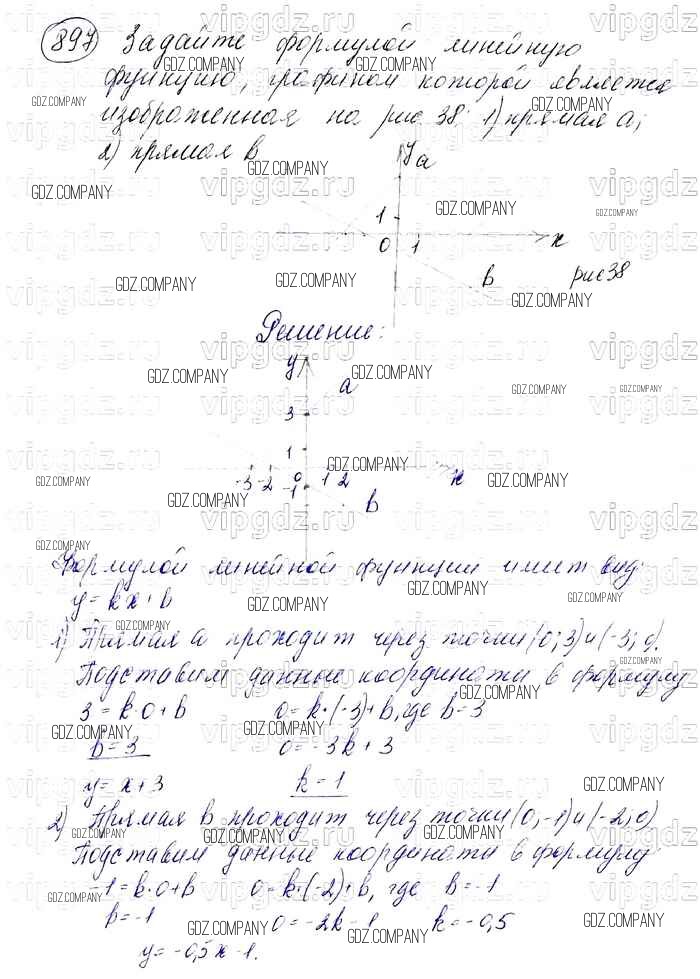 897 Задайте формулой линейную
функцию, графиком которой является
изображенная на рис 38: 1) прямая a;
2) прямая b
y a
1
0 1 x
b рис 38
Решение:
y a
3
1
-3 -2 0 1 2 x
-1
b
Формулой линейной функции имеет вид:
y = kx + b
1) Прямая a проходит через точки (0; 3) и (-3; 0).
Подставим данные координаты в формулу
3 = k·0 + b 0 = k·(-3) + b, где b = 3
b = 3 0 = -3k + 3
y = x + 3 k = 1
2) Прямая b проходит через точки (0, -1) и (-2; 0)
Подставим данные координаты в формулу
-1 = k·0 + b 0 = k·(-2) + b, где b = -1
b = -1 0 = -2k - 1 k = -0,5
y = -0,5x - 1.
vipgdz.ru
GDZ.COMPANY